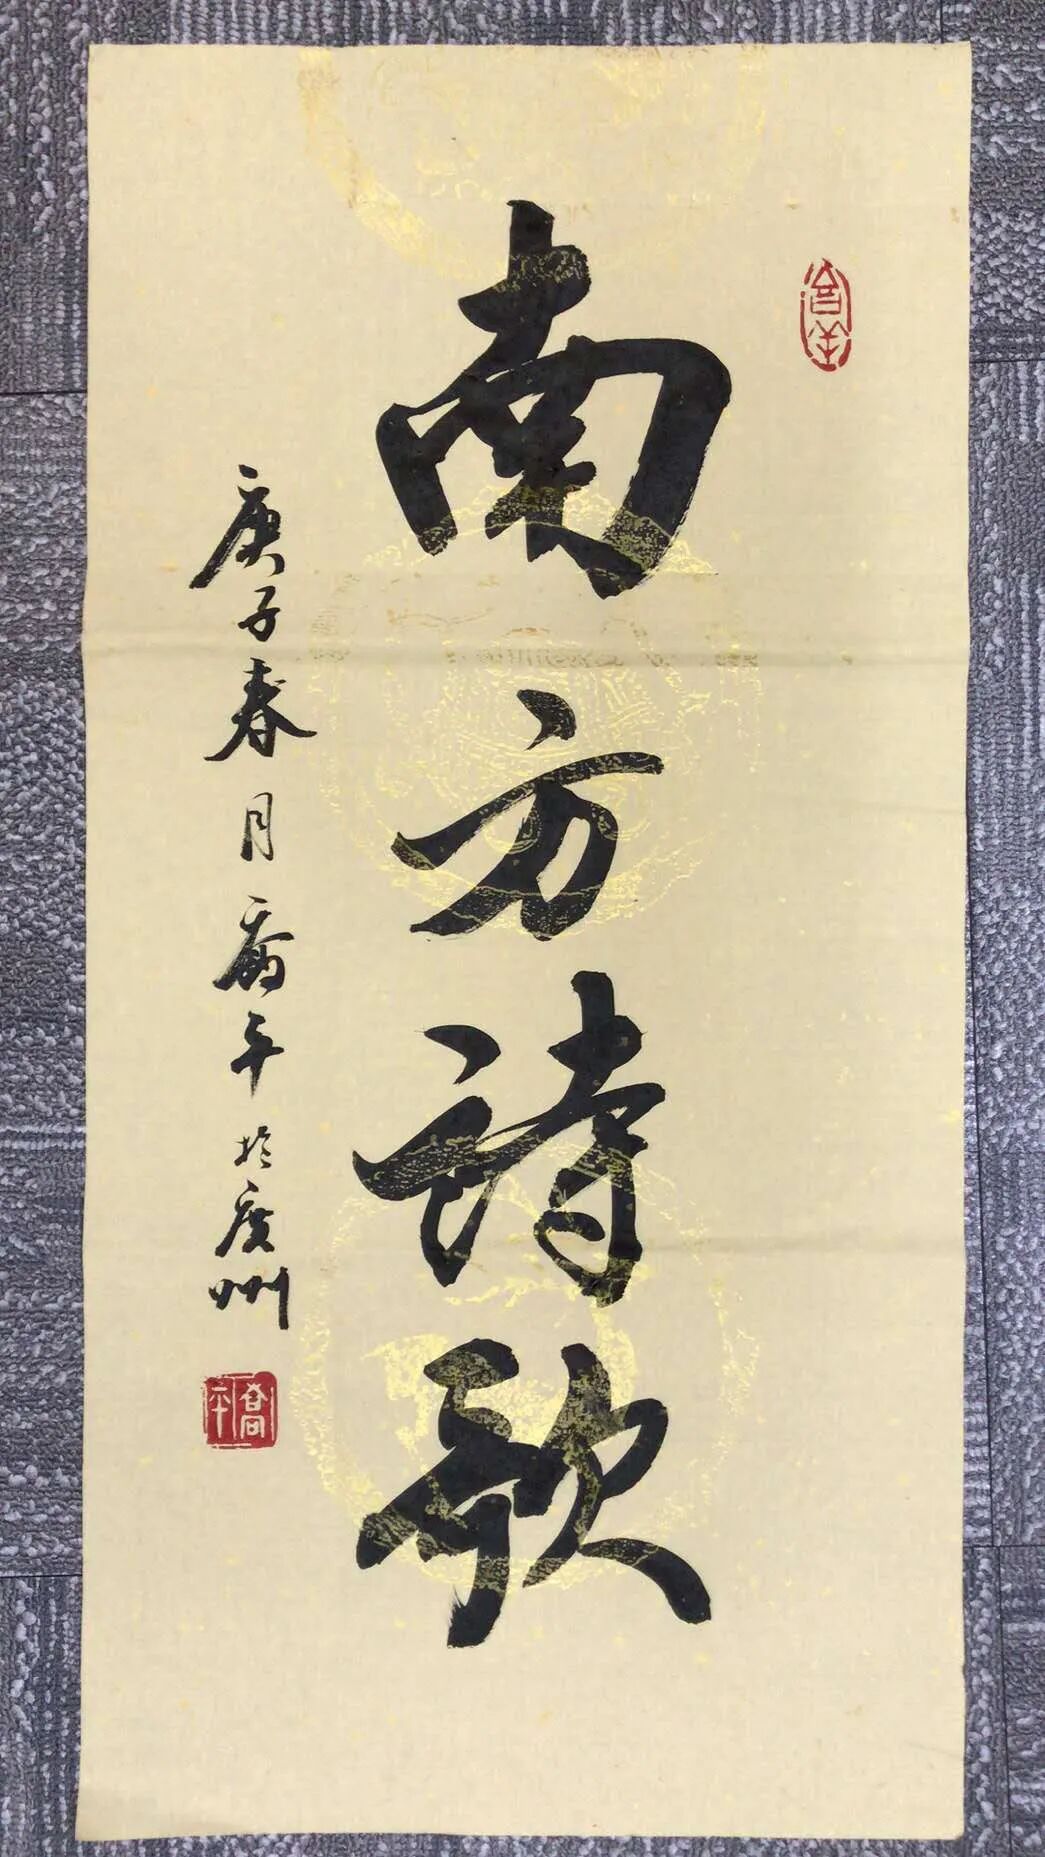 南方詩歌
庚子春月喬平於廣州
喬平